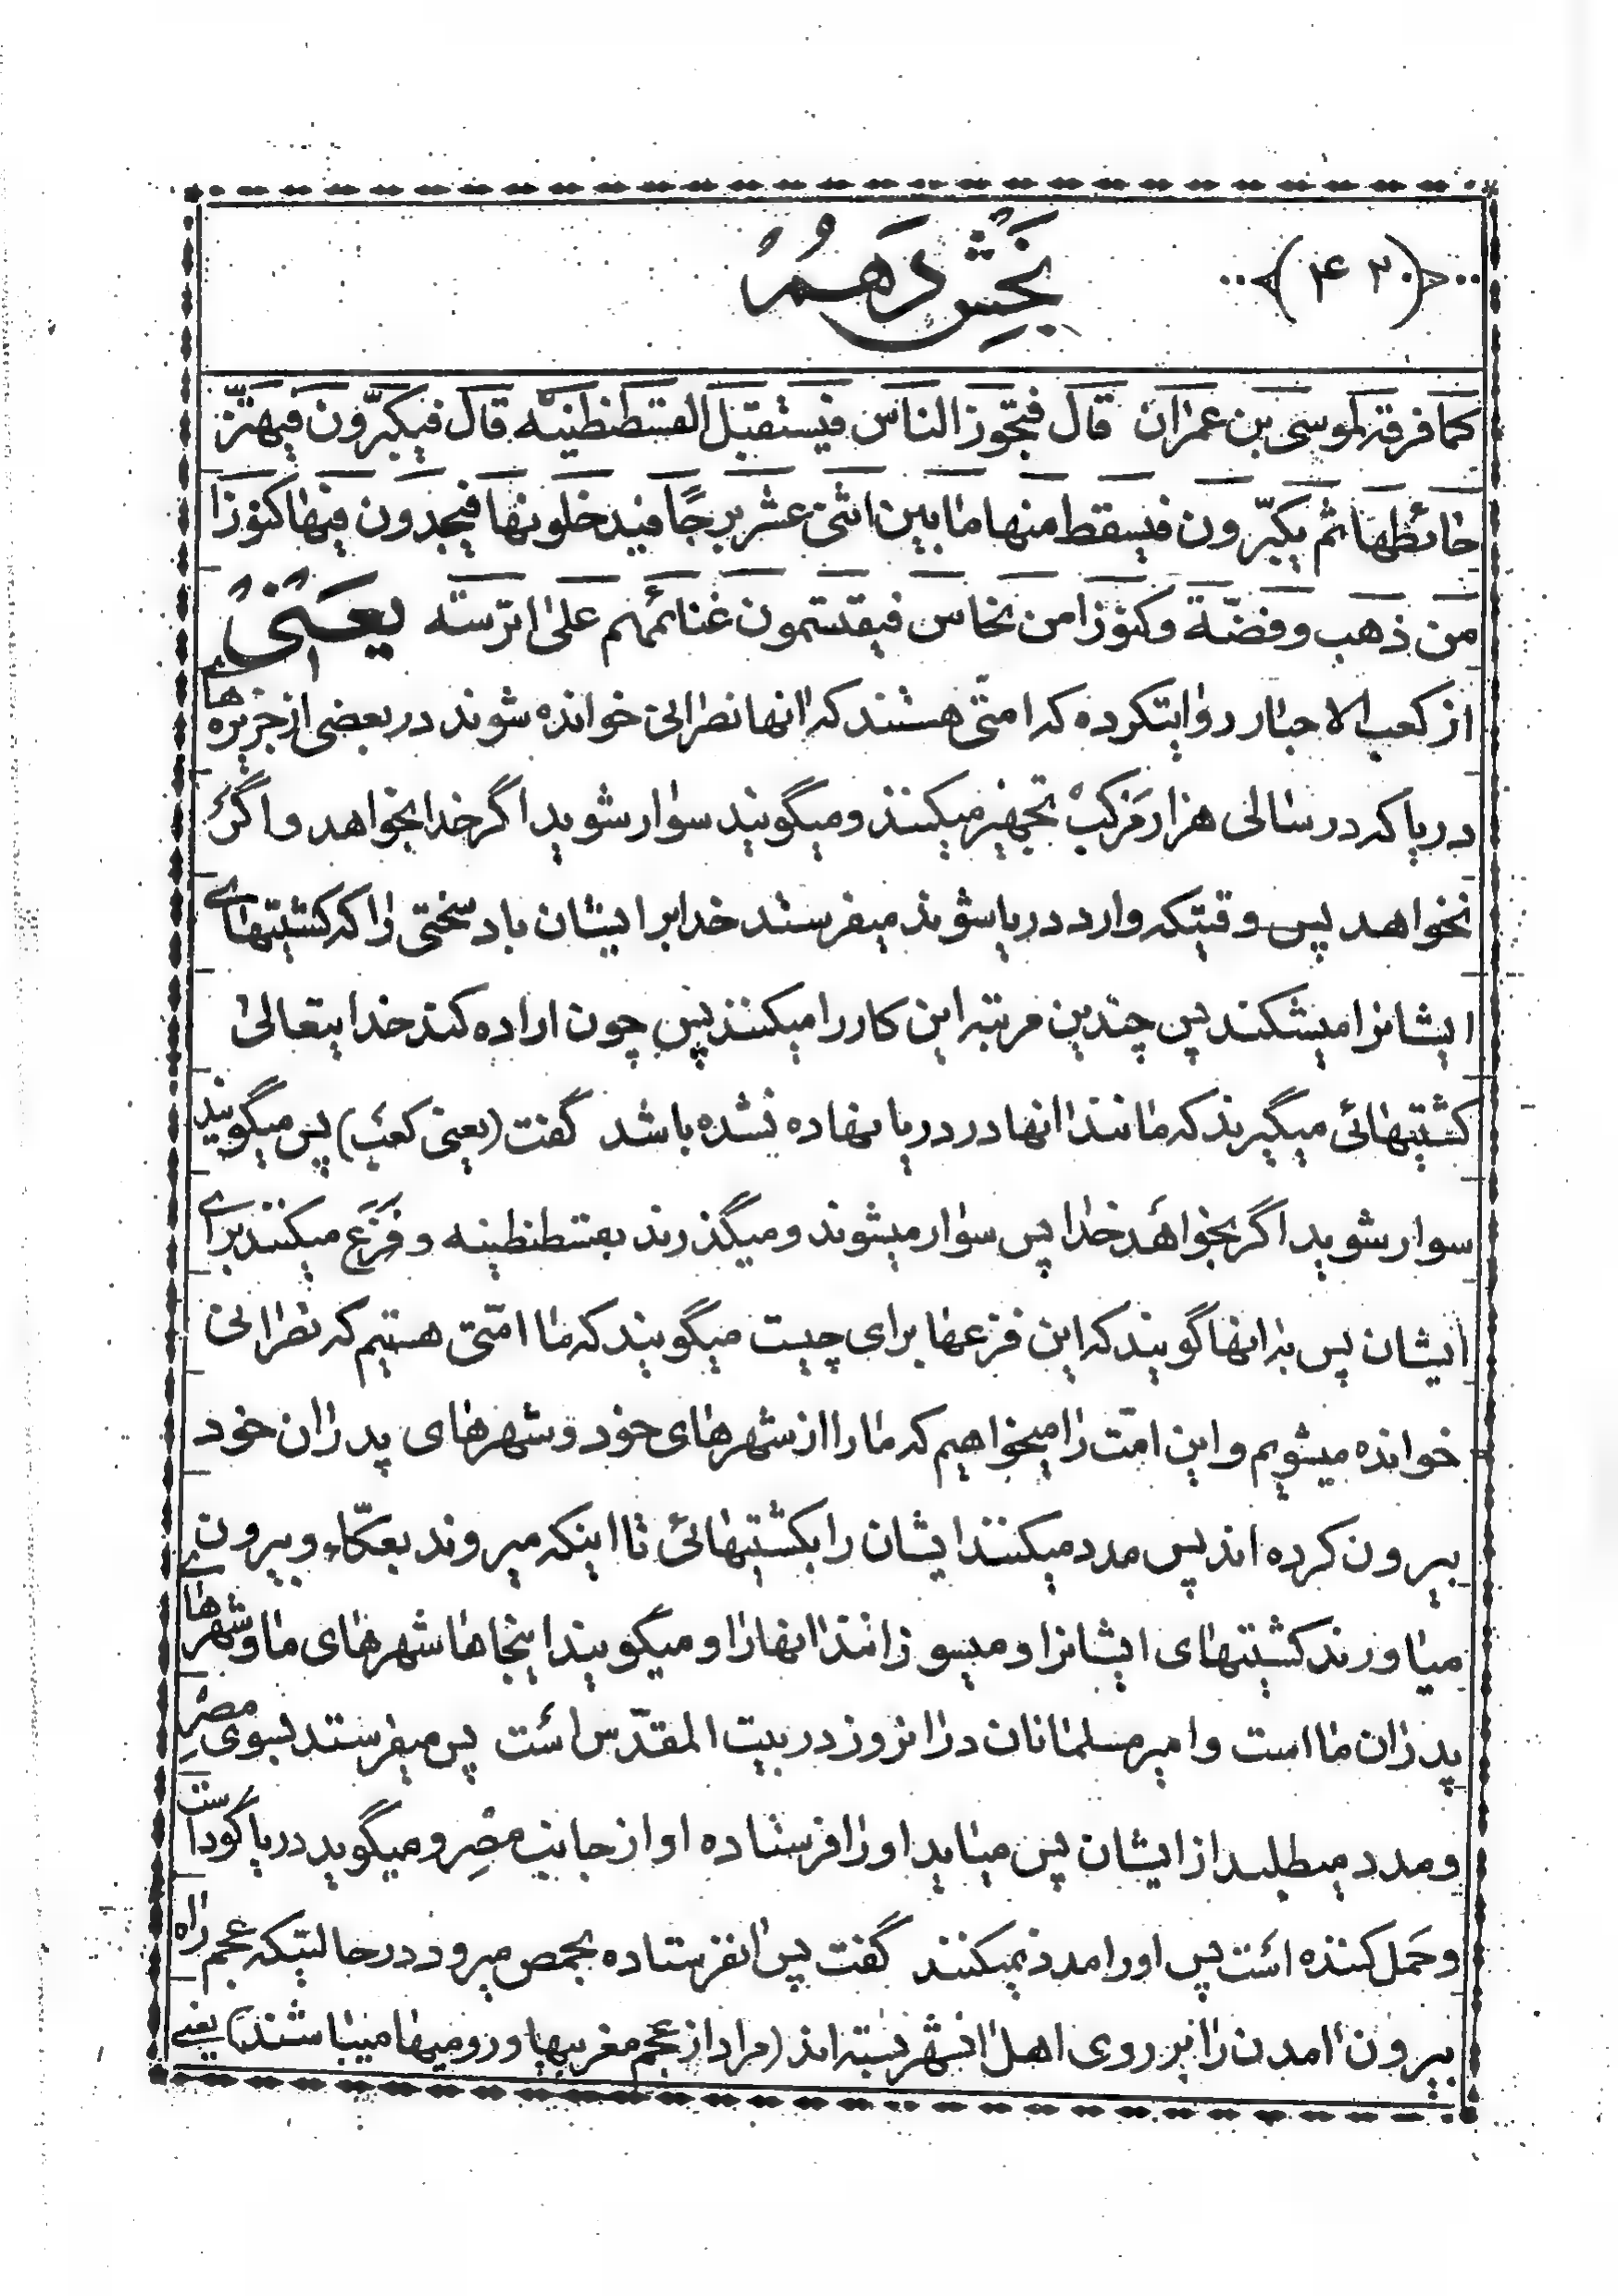 ﴿۴۲۰﴾ بخش دهم
كما فرقته لموسى بن عمران قال فتجوز الناس فيستقبل القسطنطينيه قال فيكبّرون فيهتزّ
حائطها ثم يكبّرون فيسقط منها ما بين اثنى عشر برجًا فيدخلونها فيجدون فيها كنوزا
من ذهب وفضّة وكنوزا من نحاس فيقتسمون غنائمهم على اترسته یعنی
از کعب الاحبار روایتکرده که امتّی هستند که انها نصرانی خوانده شوند در بعضی از جزیره های
دریا که در سالی هزار مرکب تجهیز میکنند و میگویند سوار شوید اگر خدا بخواهد و اگر
نخواهد پس وقتیکه وارد دریا شوند میفرستد خدا بر ایشان باد سختی را که کشتیهای
ایشانرا میشکند پس چندین مرتبه این کار را میکنند پس چون اراده کند خدایتعالی
کشتیهائی میگیرند که مانند انها در دریا نهاده نشده باشد گفت (یعنی کعب) پس میگویند
سوار شوید اگر بخواهد خدا پس سوار میشوند و میگذرند بقسطنطینیه و فزع میکنند برای
ایشان پس به انها گویند که این فزعها برای چیست میگویند که ما امّتی هستیم که نصرانی
خوانده میشویم و این امّت را میخواهیم که ما را از شهرهای خود و شهرهای پدران خود
بیرون کرده اند پس مدد میکنند ایشان را بکشتیهائی تا اینکه میروند بعکّاء و بیرون
میاورند کشتیهای ایشانرا و میسوزانند انها را و میگویند اینجاها شهرهای ما و شهرهای
پدران ما است و امیر مسلمانان در انروز در بیت المقدّس است پس میفرستد بسوی مصر
و مدد میطلبد از ایشان پس میاید او را فرستاده او از جانب مصر و میگوید دریا گود است
و حمل کننده است پس او را مدد نمیکنند گفت پس انفرستاده بحمص میرود در حالتیکه عجم راه
بیرون امدن را بر روی اهل انشهر بسته اند (مراد از عجم مغربیها و رومیها میباشند) یعنی